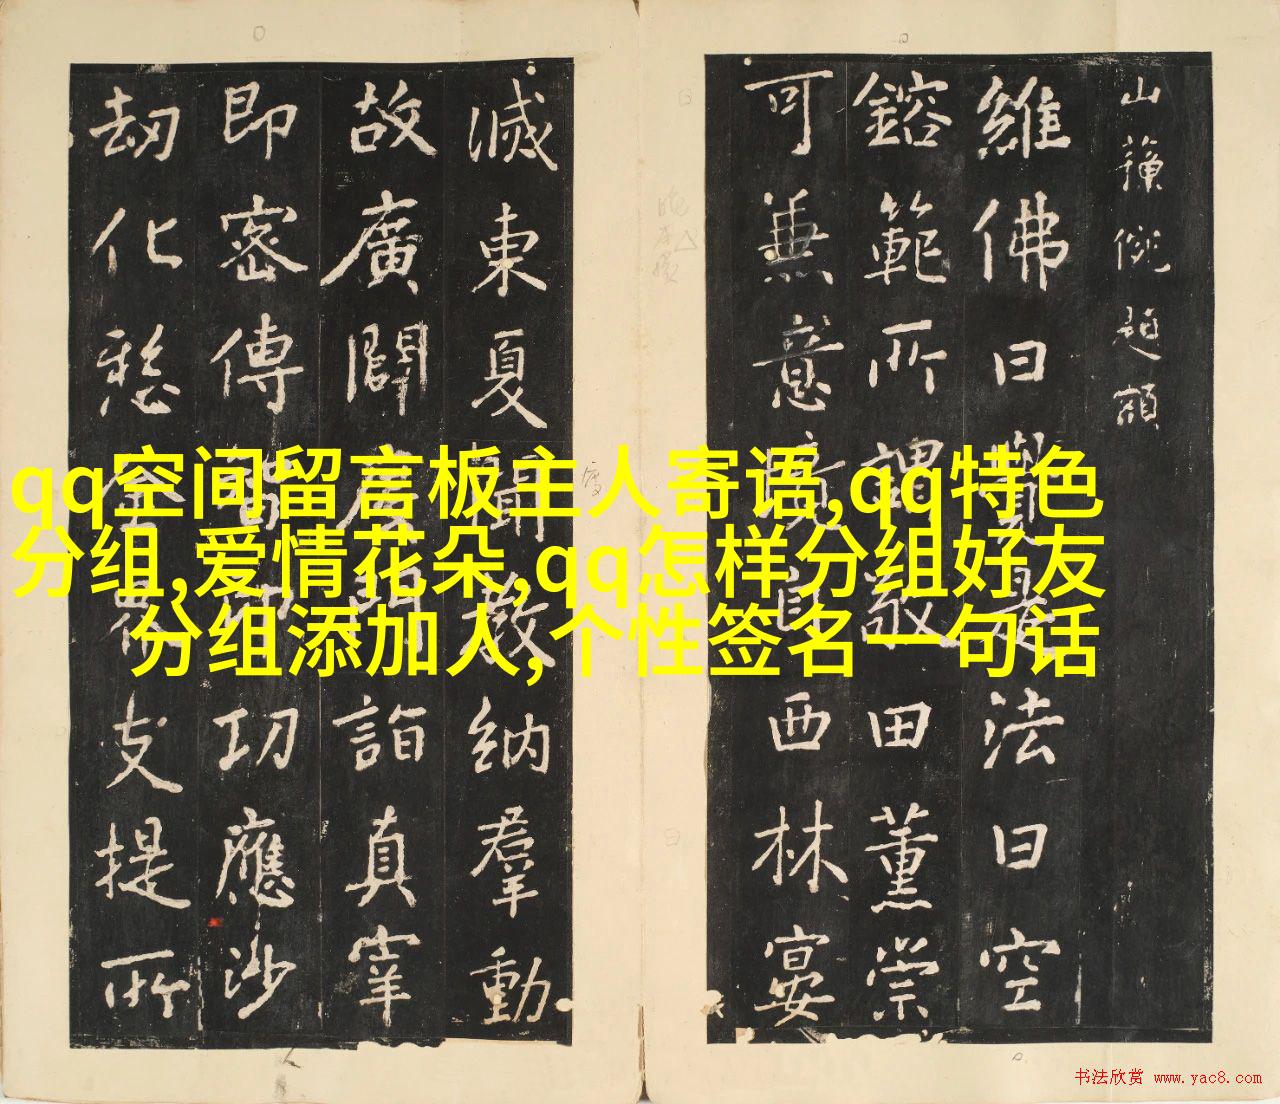 qq空间留言板主人寄语,qq特色
分组,爱情花朵,qq怎样分组好友
分组添加人,个性签名一句话
山 額
維佛曰 法曰空
鎔範所 田薰崇
可兼意 西林宴
滅東夏 納羣動
故廣闢 詣真宰
即密傳 功應沙
劫化愁 支提所
书法欣赏 www.yac8.com